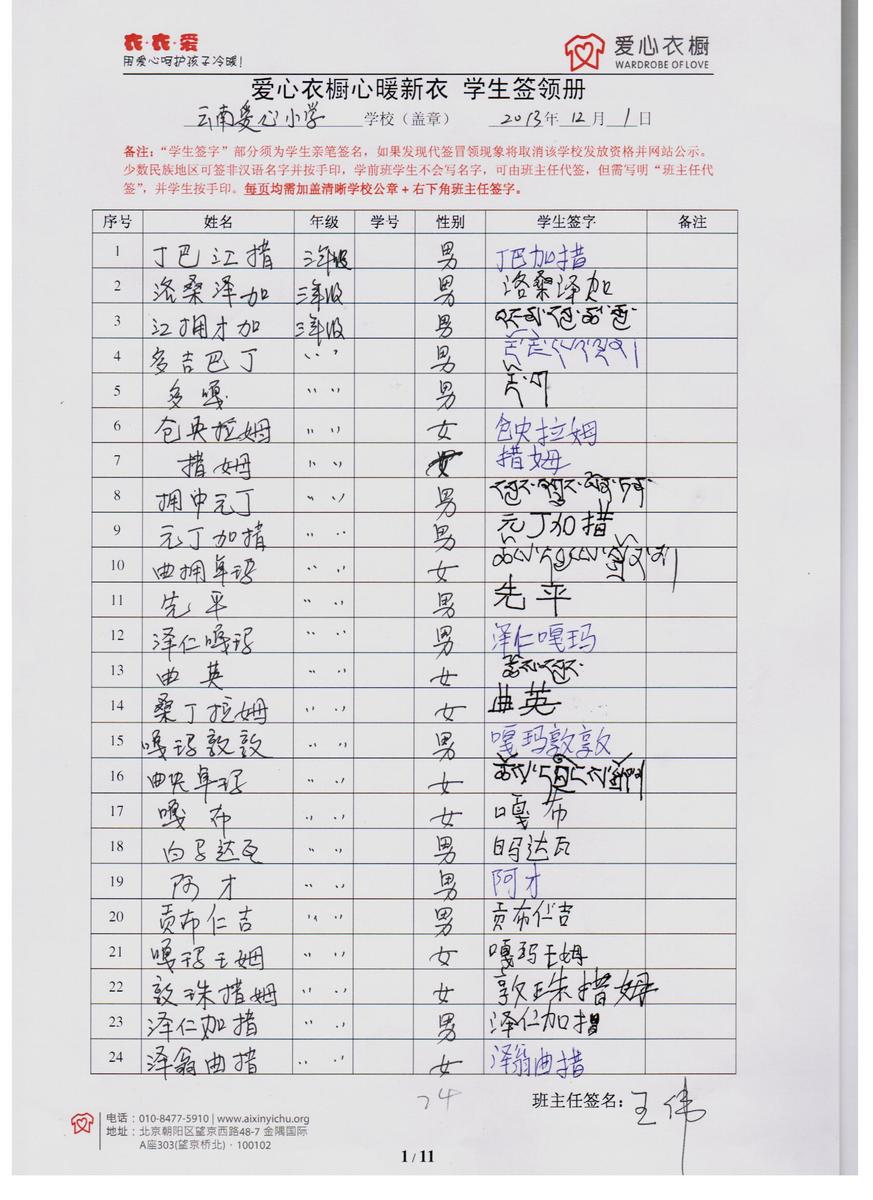 衣·衣·爱
用爱心呵护孩子冷暖!
爱心衣橱
WARDROBE OF LOVE
爱心衣橱心暖新衣 学生签领册
云南爱心小学 学校（盖章） 2013年 12月 1日
备注：“学生签字”部分须为学生亲笔签名，如果发现代签冒领现象将取消该学校发放资格并网站公示。
少数民族地区可签非汉语名字并按手印，学前班学生不会写名字，可由班主任代签，但需写明“班主任代
签”，并学生按手印。每页均需加盖清晰学校公章+右下角班主任签字。
序号 姓名 年级 学号 性别 学生签字 备注
1 丁巴江措 三年级 男 丁巴加措
2 洛桑泽加 三年级 男 洛桑泽加
3 江拥才加 三年级 男
4 多吉巴丁 〃 〃 男
5 多嘎 〃 〃 男
6 仓央拉姆 〃 〃 女 仓央拉姆
7 措姆 〃 〃 女 措姆
8 拥中元丁 〃 〃 男
9 元丁加措 〃 〃 男 元丁加措
10 曲拥卓玛 〃 〃 女
11 先平 〃 〃 男 先平
12 泽仁嘎玛 〃 〃 男 泽仁嘎玛
13 曲英 〃 〃 女
14 桑丁拉姆 〃 〃 女 曲英
15 嘎玛敦敦 〃 〃 男 嘎玛敦敦
16 曲央卓玛 〃 〃 女
17 嘎布 〃 〃 女 嘎布
18 白马达瓦 〃 〃 男 白玛达瓦
19 阿才 〃 〃 男 阿才
20 贡布仁吉 〃 〃 男 贡布仁吉
21 嘎玛王姆 〃 〃 女 嘎玛王姆
22 敦珠措姆 〃 〃 女 敦珠措姆
23 泽仁加措 〃 〃 男 泽仁加措
24 泽翁曲措 〃 〃 女 泽翁曲措
24
班主任签名：王伟
电话：010-8477-5910 | www.aixinyichu.org
地址：北京朝阳区望京西路48-7 金隅国际
A座303(望京桥北)·100102
1 / 11